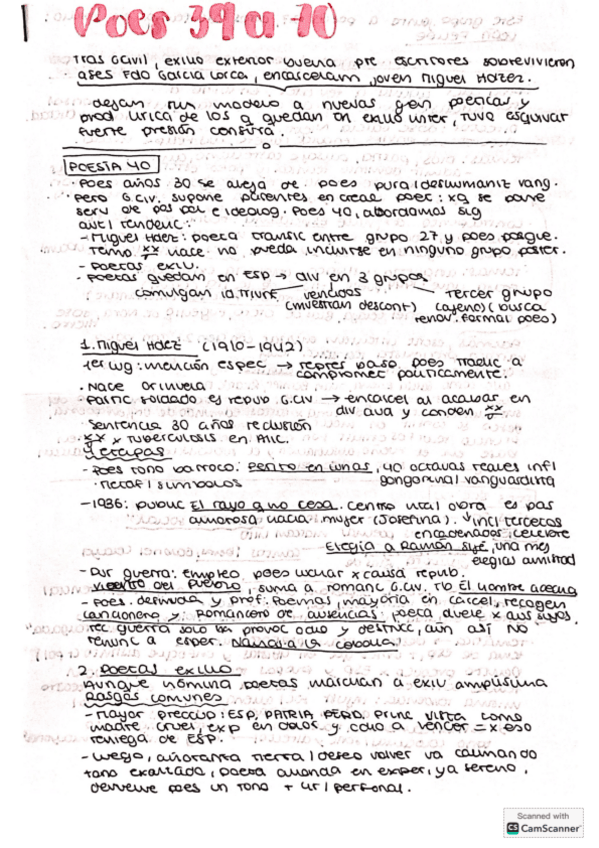 Poes 39 a 70
Tras G.Civil, exilio exterior buena pre escritores sobrevivieron
ases Fdo García Lorca, encascelam joven Miguel Hdez.
dejan sin modelo a nuevas gen poeticas y
prod lirica de los q quedan en exilio inter, tuvo esquivar
fuerte presión censura.
POESÍA 40
· Poes años 30 se aleja de poes pura/deshumaniz vang.
Pero G.Civ. supone parentes en crear poec: xq se pone
serv de pos pol e ideolog. Poes 40, abordamos sig
tendenc:
- Miguel Hdez: poeta transic entre grupo 27 y poes posgue.
Temp hace no pueda incluirse en ningún grupo poster.
- Poetas exili.
- Poetas quedan en ESP → div en 3 grupos
comulgan id.Triunf vencidos Tercer grupo
(muestran descont) (ajeno) (busca
renov. formal poeo)
1. Miguel Hdez (1910-1942)
1er lug: mención espec → repres paso poes tradic a
compromet políticamente.
· Nace Orihuela
· Partic soldado es repub G.Civ → encarcel al acabar en
div y conden
· Sentencia 30 años reclusión
x tuberculosis en Alic.
4 etapas
- Poes tono barroco: Perito en lunas, 40 octavas reales infl
· Metaf / símbolos gongorina / vanguardista
- 1936: public El rayo q no cesa. Centro vital obra es pas
amorosa hacia mujer (Josefina). ↓ incl tercetos
encadenados, celebre
Elegía a Ramón Sijé, una mej
elegías amistad
- Dur guerra: empleo poes luchar x causa repub.
Viento del Pueblo, suma a romanc G.Civ. tb El hombre acecha
- Poes. definida y prof. Poemas, mayoría en cárcel, recogen
Cancionero y Romancero de ausencias, poeta duele x aus suyos,
rec guerra solo ha provoc odio y destrucc, aún así NO
renunc a esper. Nanas a la cebolla
2. Poetas exilio
Aunque nómina poetas marchan a exil amplísima
Rasgos comunes
- Mayor preocup: ESP, PATRIA PERD. Princ vista como
madre cruel, exp en dolor y odio a vencer = x eso
reniega de ESP.
- Luego, añoranza tierra / deseo volver va calmando
tono exaltado, poeta ahonda en exper, ya sereno,
devuelve poes un tono + lir / personal.
Scanned with
CS CamScanner